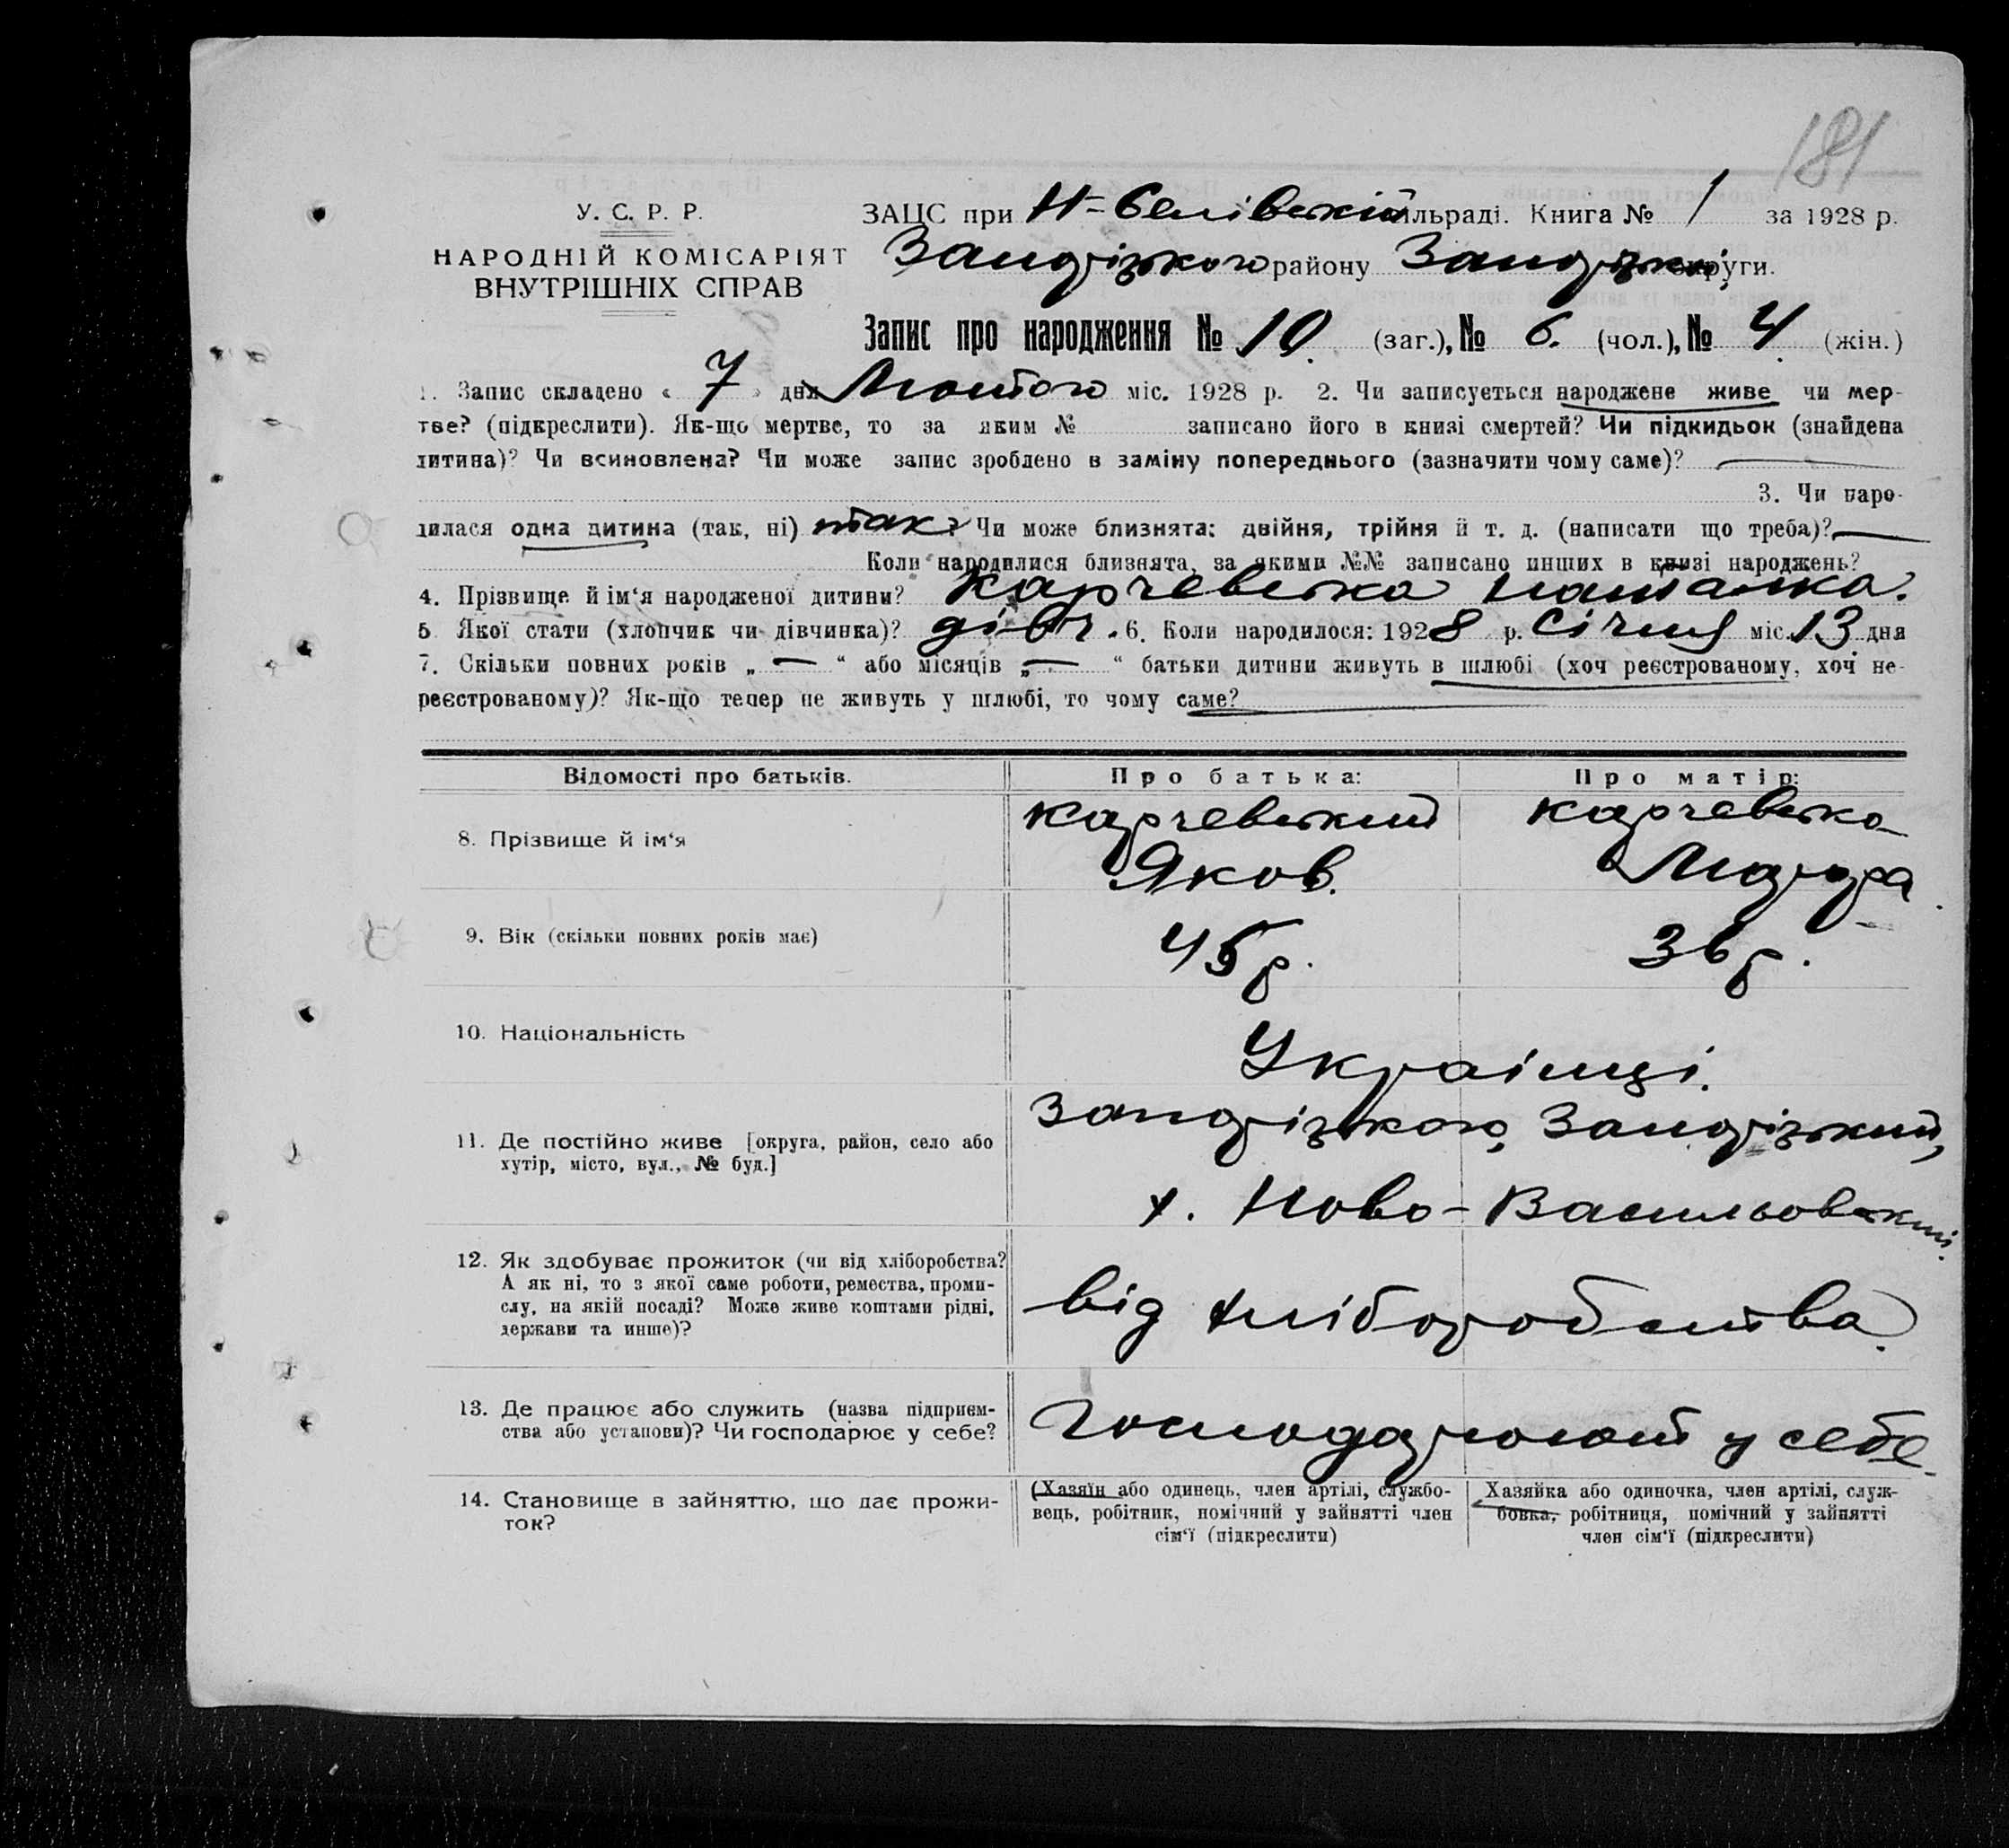 181
У. С. Р. Р.
НАРОДНІЙ КОМІСАРІЯТ
ВНУТРІШНІХ СПРАВ
ЗАЦС при Н-білівській сільраді. Книга № 1 за 1928 р.
Запорізького району Запорізької округи.
Запис про народження № 10. (заг.), № 6. (чол.), № 4. (жін.)
1. Запис складено « 7 » дня Лютого міс. 1928 р. 2. Чи записується народжене живе чи мер-
тве? (підкреслити). Як-що мертве, то за яким № записано його в книзі смертей? Чи підкидьок (знайдена
дитина)? Чи всиновлена? Чи може запис зроблено в заміну попереднього (зазначити чому саме)? —
3. Чи наро-
дилася одна дитина (так, ні) так? Чи може близнята: двійня, трійня й т. д. (написати що треба)? —
Коли народилися близнята, за якими №№ записано инших в книзі народжень?
4. Прізвище й ім‘я народженої дитини? Карчевська Наталка.
5 Якої стати (хлопчик чи дівчинка)? дівч. 6. Коли народилося: 1928 р. Січня міс. 13 дня
7. Скільки повних років „ — “ або місяців „ — “ батьки дитини живуть в шлюбі (хоч реєстрованому, хоч не-
реєстрованому)? Як-що тепер не живуть у шлюбі, то чому саме? —
Відомості про батьків. Про батька: Про матір:
8. Прізвище й ім‘я Карчевський Яков. Карчевська
9. Вік (скільки повних років має) 45 р. 36 р.
10. Національність Українці.
11. Де постійно живе [округа, район, село або
хутір, місто, вул., № буд.]
Запорізького, Запорізький,
х. Ново-Васильовський.
12. Як здобуває прожиток (чи від хліборобства?
А як ні, то з якої саме роботи, ремества, проми-
слу, на якій посаді? Може живе коштами рідні,
держави та инше)?
від хліборобства.
13. Де працює або служить (назва підприєм-
ства або установи)? Чи господарює у себе?
Господарюют у себе.
14. Становище в зайняттю, що дає прожи-
ток?
(Хазяїн або одинець, член артілі, службо-
вець, робітник, помічний у зайнятті член
сім‘ї (підкреслити)
Хазяйка або одиночка, член артілі, служ-
бовка, робітниця, помічний у зайнятті
член сім‘ї (підкреслити)